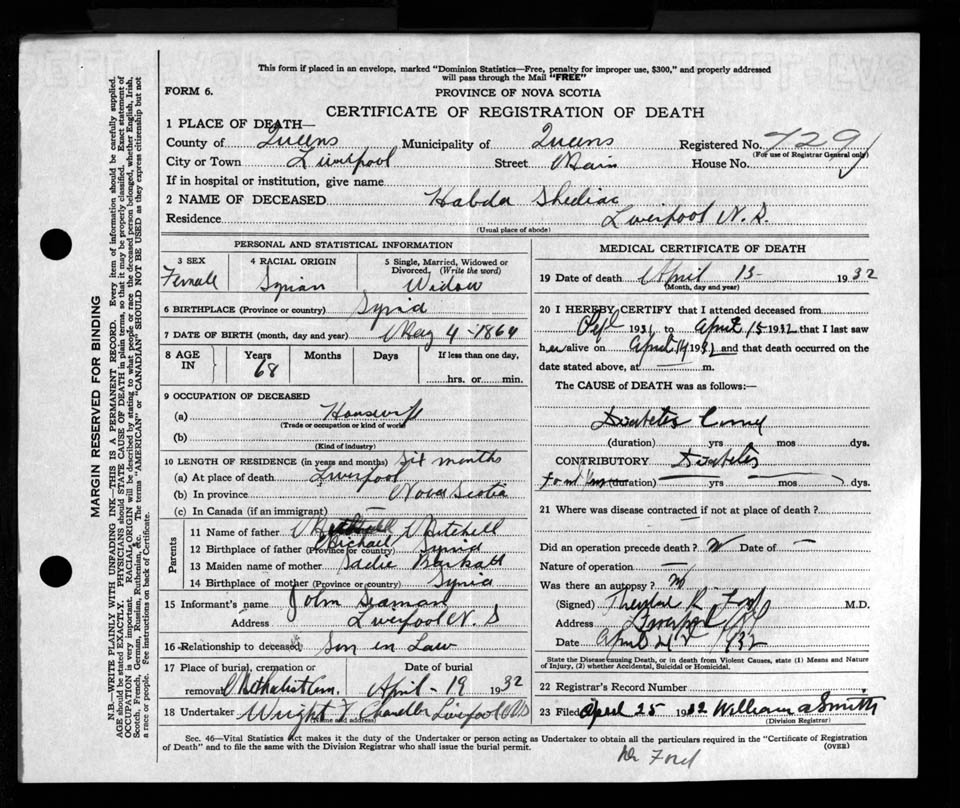 This form if placed in an envelope, marked "Dominion Statistics—Free, penalty for improper use, $300," and properly addressed
will pass through the Mail "FREE"
FORM 6.
PROVINCE OF NOVA SCOTIA
CERTIFICATE OF REGISTRATION OF DEATH
1 PLACE OF DEATH—
County of Queens Municipality of Queens Registered No. 729
(For use of Registrar General only)
City or Town Liverpool Street Main House No.
If in hospital or institution, give name
2 NAME OF DECEASED Habda Shediac
Residence Liverpool N. S.
(Usual place of abode)
PERSONAL AND STATISTICAL INFORMATION
3 SEX 4 RACIAL ORIGIN 5 Single, Married, Widowed or
Divorced, (Write the word)
Female Syrian Widow
6 BIRTHPLACE (Province or country) Syria
7 DATE OF BIRTH (month, day and year) May 4 - 1864
8 AGE IN Years Months Days If less than one day,
68 hrs. or min.
9 OCCUPATION OF DECEASED
(a) Housewife
(Trade or occupation or kind of work)
(b)
(Kind of industry)
10 LENGTH OF RESIDENCE (in years and months) Six months
(a) At place of death Liverpool
(b) In province Nova Scotia
(c) In Canada (if an immigrant) —
Parents
11 Name of father Michael Mitchell
12 Birthplace of father (Province or country) Syria
13 Maiden name of mother Sadie Barkatt
14 Birthplace of mother (Province or country) Syria
15 Informant's name John Seaman
Address Liverpool N. S
16 Relationship to deceased Son in Law
17 Place of burial, cremation or Date of burial
removal Methodist Cem. April - 19 1932
18 Undertaker Wright & Chandler Liverpool N S
(Name and address)
MEDICAL CERTIFICATE OF DEATH
19 Date of death April 15 - 1932
(Month, day and year)
20 I HEREBY CERTIFY that I attended deceased from
Sept 1931 to April 15 1932 that I last saw
her alive on April 14 and that death occurred on the
date stated above, at m.
The CAUSE of DEATH was as follows:—
Diabetes
(duration) yrs mos dys.
CONTRIBUTORY Diabetes
(duration) yrs mos dys.
21 Where was disease contracted if not at place of death?
Did an operation precede death? N Date of —
Nature of operation —
Was there an autopsy? No
(Signed) Theodore R Ford M.D.
Address Liverpool
Date April 1932
State the Disease causing Death, or in death from Violent Causes, state (1) Means and Nature
of Injury, (2) whether Accidental, Suicidal or Homicidal.
22 Registrar's Record Number
23 Filed April 25 1932 William A Smith
(Division Registrar)
Sec. 46—Vital Statistics Act makes it the duty of the Undertaker or person acting as Undertaker to obtain all the particulars required in the "Certificate of Registration
of Death" and to file the same with the Division Registrar who shall issue the burial permit.
(OVER)
Dr Ford
MARGIN RESERVED FOR BINDING
N.B.—WRITE PLAINLY WITH UNFADING INK—THIS IS A PERMANENT RECORD. Every item of information should be carefully supplied.
AGE should be stated EXACTLY. PHYSICIANS should STATE CAUSE OF DEATH in plain terms, so that it may be properly classified. Exact statement of
OCCUPATION is very important. RACIAL ORIGIN will be described by stating to what people or race the deceased person belonged, whether English, Irish,
Scotch, French, German, Russian, Ruthenian, &c. The terms "AMERICAN" or "CANADIAN" SHOULD NOT BE USED as they express citizenship but not
a race or people. See instructions on back of Certificate.